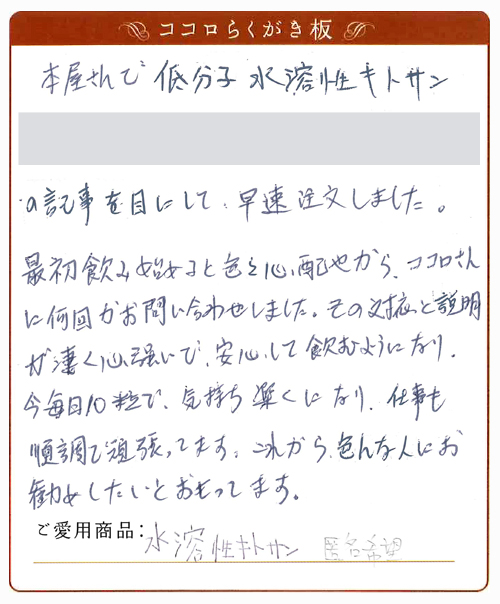 ココロらくがき板
本屋さんで 低分子 水溶性キトサン
の記事を目にして、早速注文しました。
最初飲み始めると色々心配やから、ココロさん
に何回かお問い合わせしました。その対応と説明
が凄く心強いで、安心して飲むようになり、
今毎日10粒で、気持ち楽くになり、仕事も
順調で頑張ってます。これから、色んな人にお
勧めしたいとおもってます。
ご愛用商品：水溶性キトサン 匿名希望